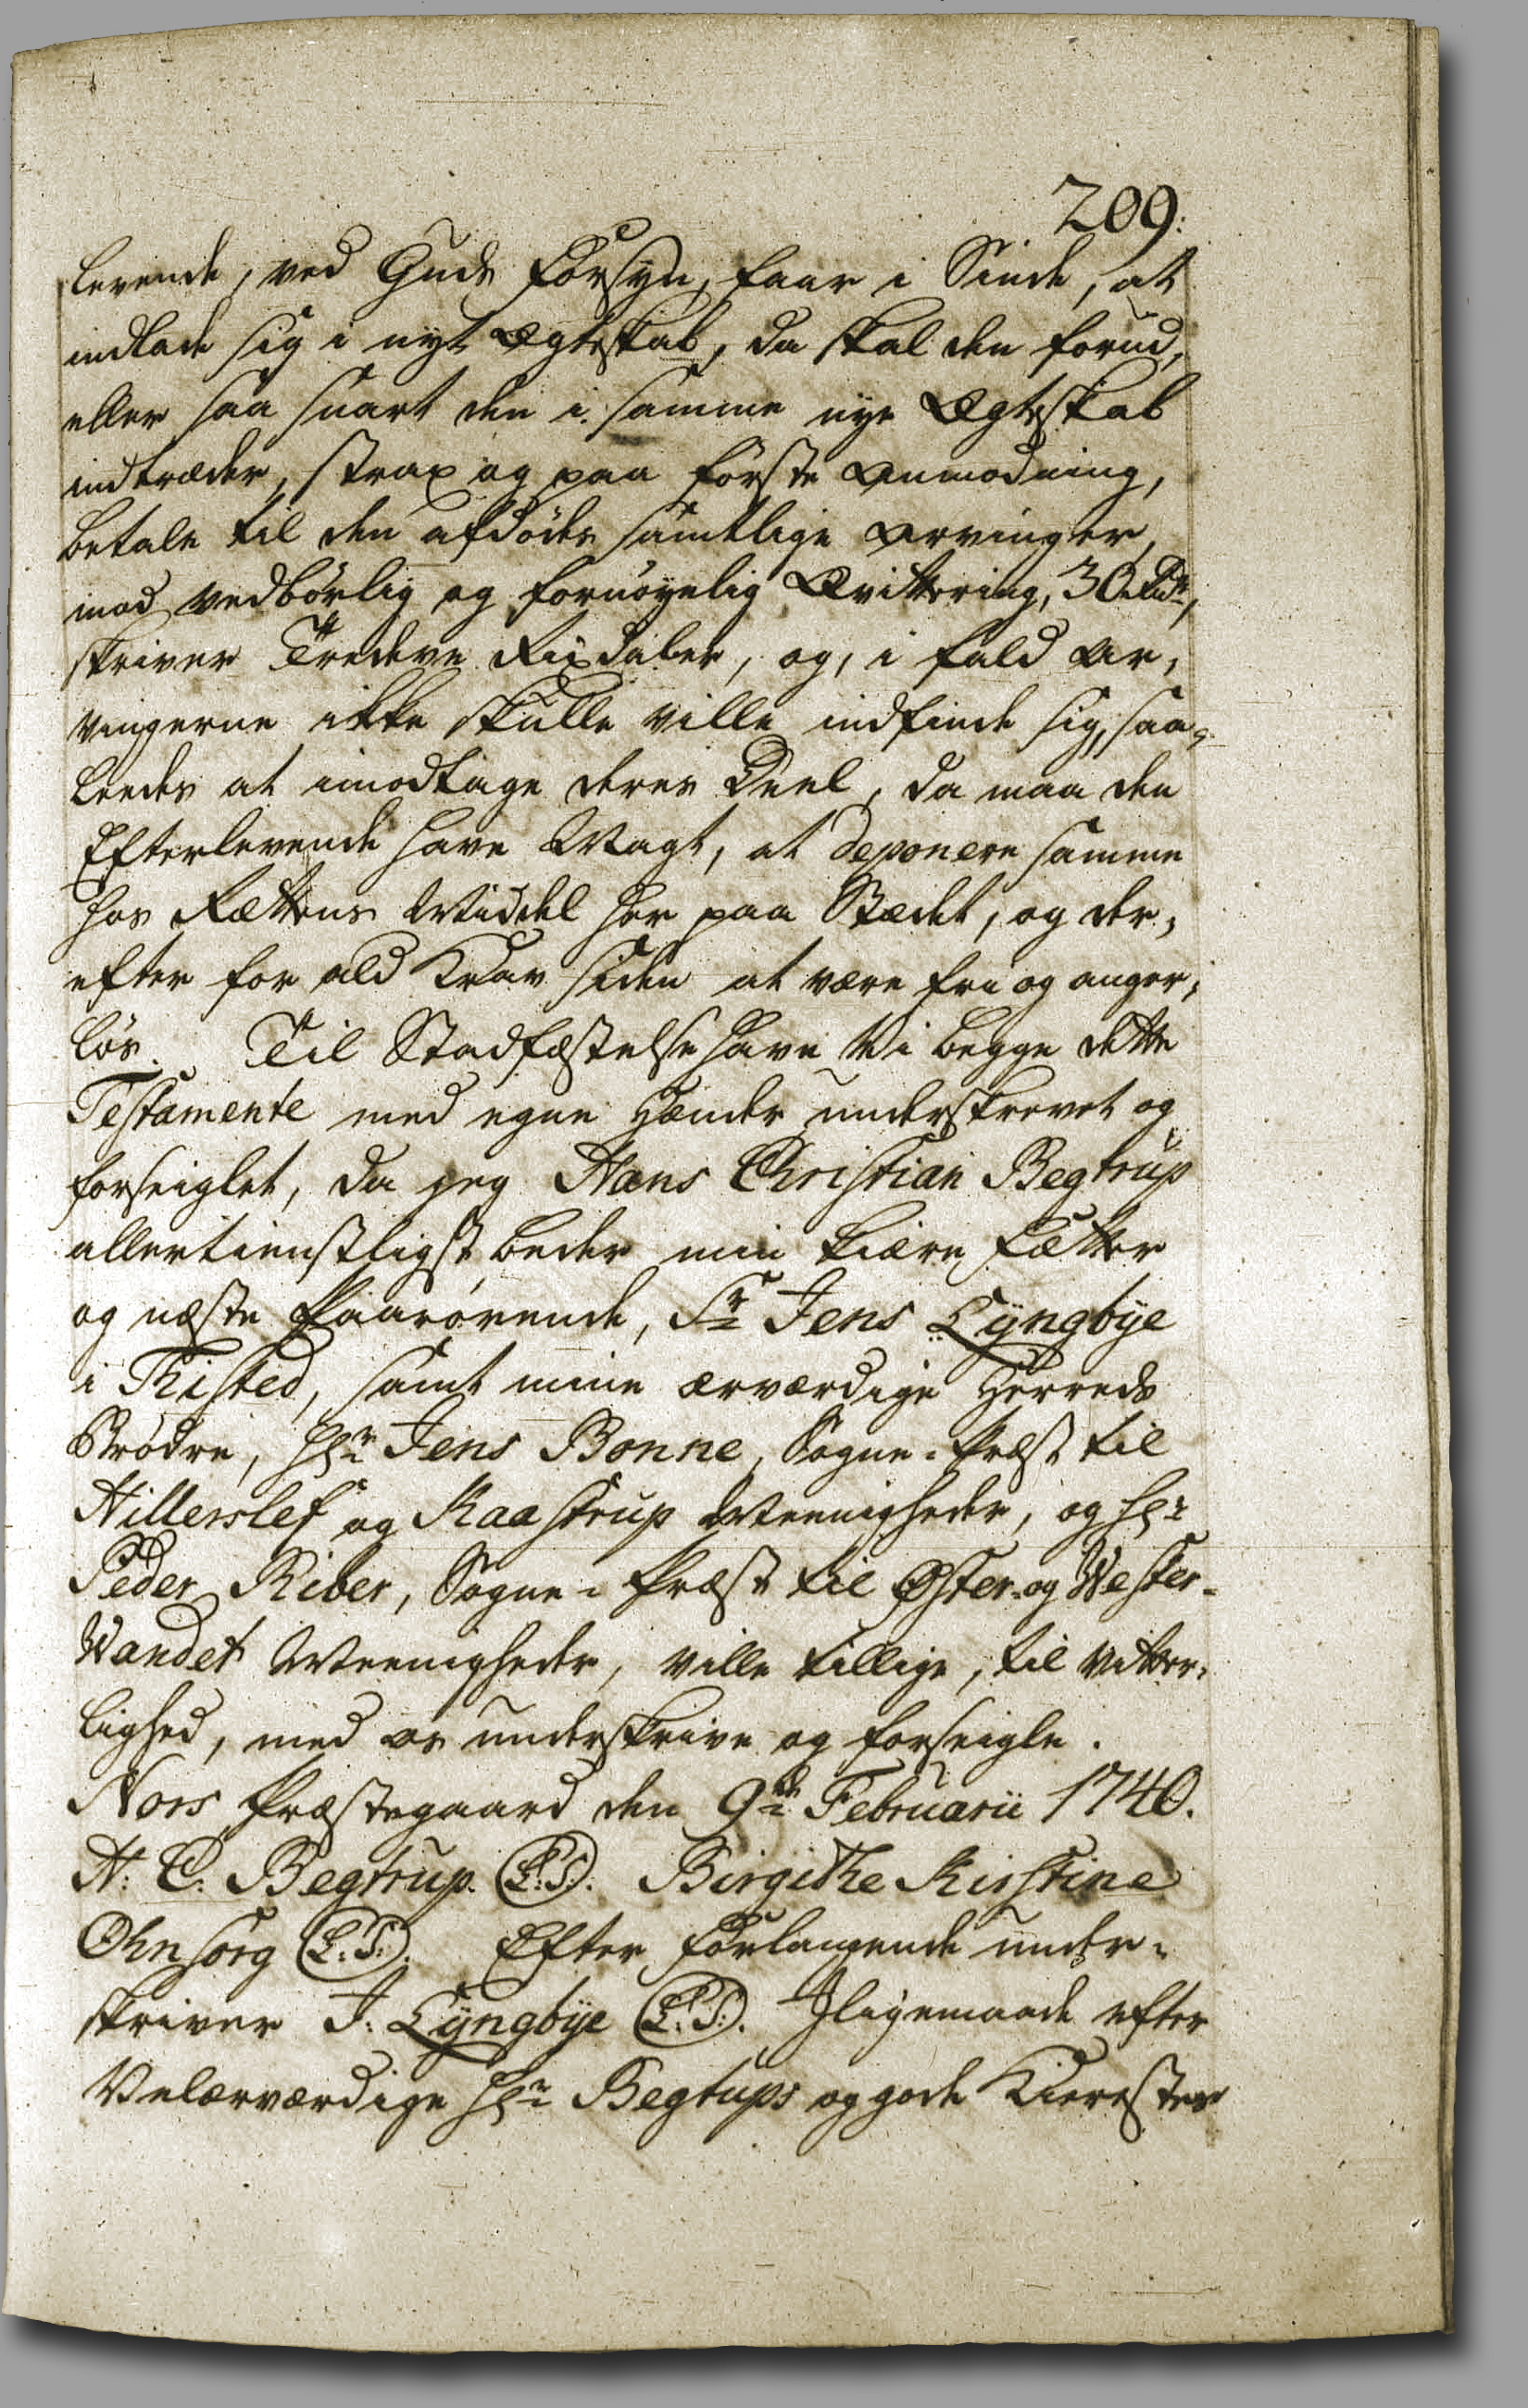 209.
levende, ved Guds Forsyn, faar i Sinde, at
indlade sig i nyt Ægteskab, da skal den forud,
eller saa snart den i samme nye Ægteskab
indtræder, strax og paa første Anmodning,
betale til den afdødes samtlige Arvinger,
mod vedbørlig og fornøyelig Qvittering, 30 Rdr,
skriver Tredeve Rixdaler, og, i fald Ar-
vingerne ikke skulle ville indfinde sig, saa-
ledes at imodtage deres Deel, da maa den
Efterlevende have Magt, at deponere samme
hos Rettens Middel her paa Stædet, og der-
efter for ald Krav siden at være fri og anger-
løs. Til Stadfæstelse have Vi begge dette
Testamente med egne Hænder underskrevet og
forseiglet, da jeg Hans Christian Begtrup
allertienstligst beder min kiære Fætter
og næste Paarørende, Sr Jens Lÿngbÿe
i Thisted, samt mine ærværdige Herreds
Brødre, Hr Jens Bonne, Sogne-Præst til
Hillerslef og Kaastrup Meenigheder, og Hr
Peder Riber, Sogne-Præst til Øster- og Wester-
Wandet Meenigheder, ville tillige, til Vitter-
lighed, med os underskrive og forseigle.
Nors Præstegaard den 9de Februarii 1740.
H: C: Begtrup. (L.S.). Birgithe Kirstine
Ohnsorg (L.S.). Efter Forlangende under-
skriver J. Lÿngbÿe (L.S.). Iligemaade efter
Velærværdige Hr Begtups og gode Kierestes